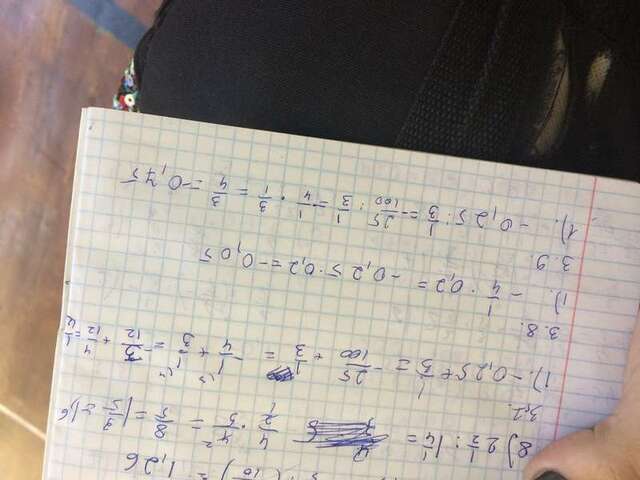 1,26
8) 2 1/2 : 1 1/4 = 4/2 · 4²/5 = 8/5 = 1 3/5 = 1,6
3,7.
1). -0,25 + 1/3 = -25/100 + 1/3 = -1/4 + 1/3 = -3/12 + 4/12 = 1/12
3.8.
1). -1/4 · 0,2 = -0,25 · 0,2 = -0,05
3.9
1). -0,25 : 1/3 = -25/100 : 1/3 = -1/4 · 3/1 = 3/4 = -0,75